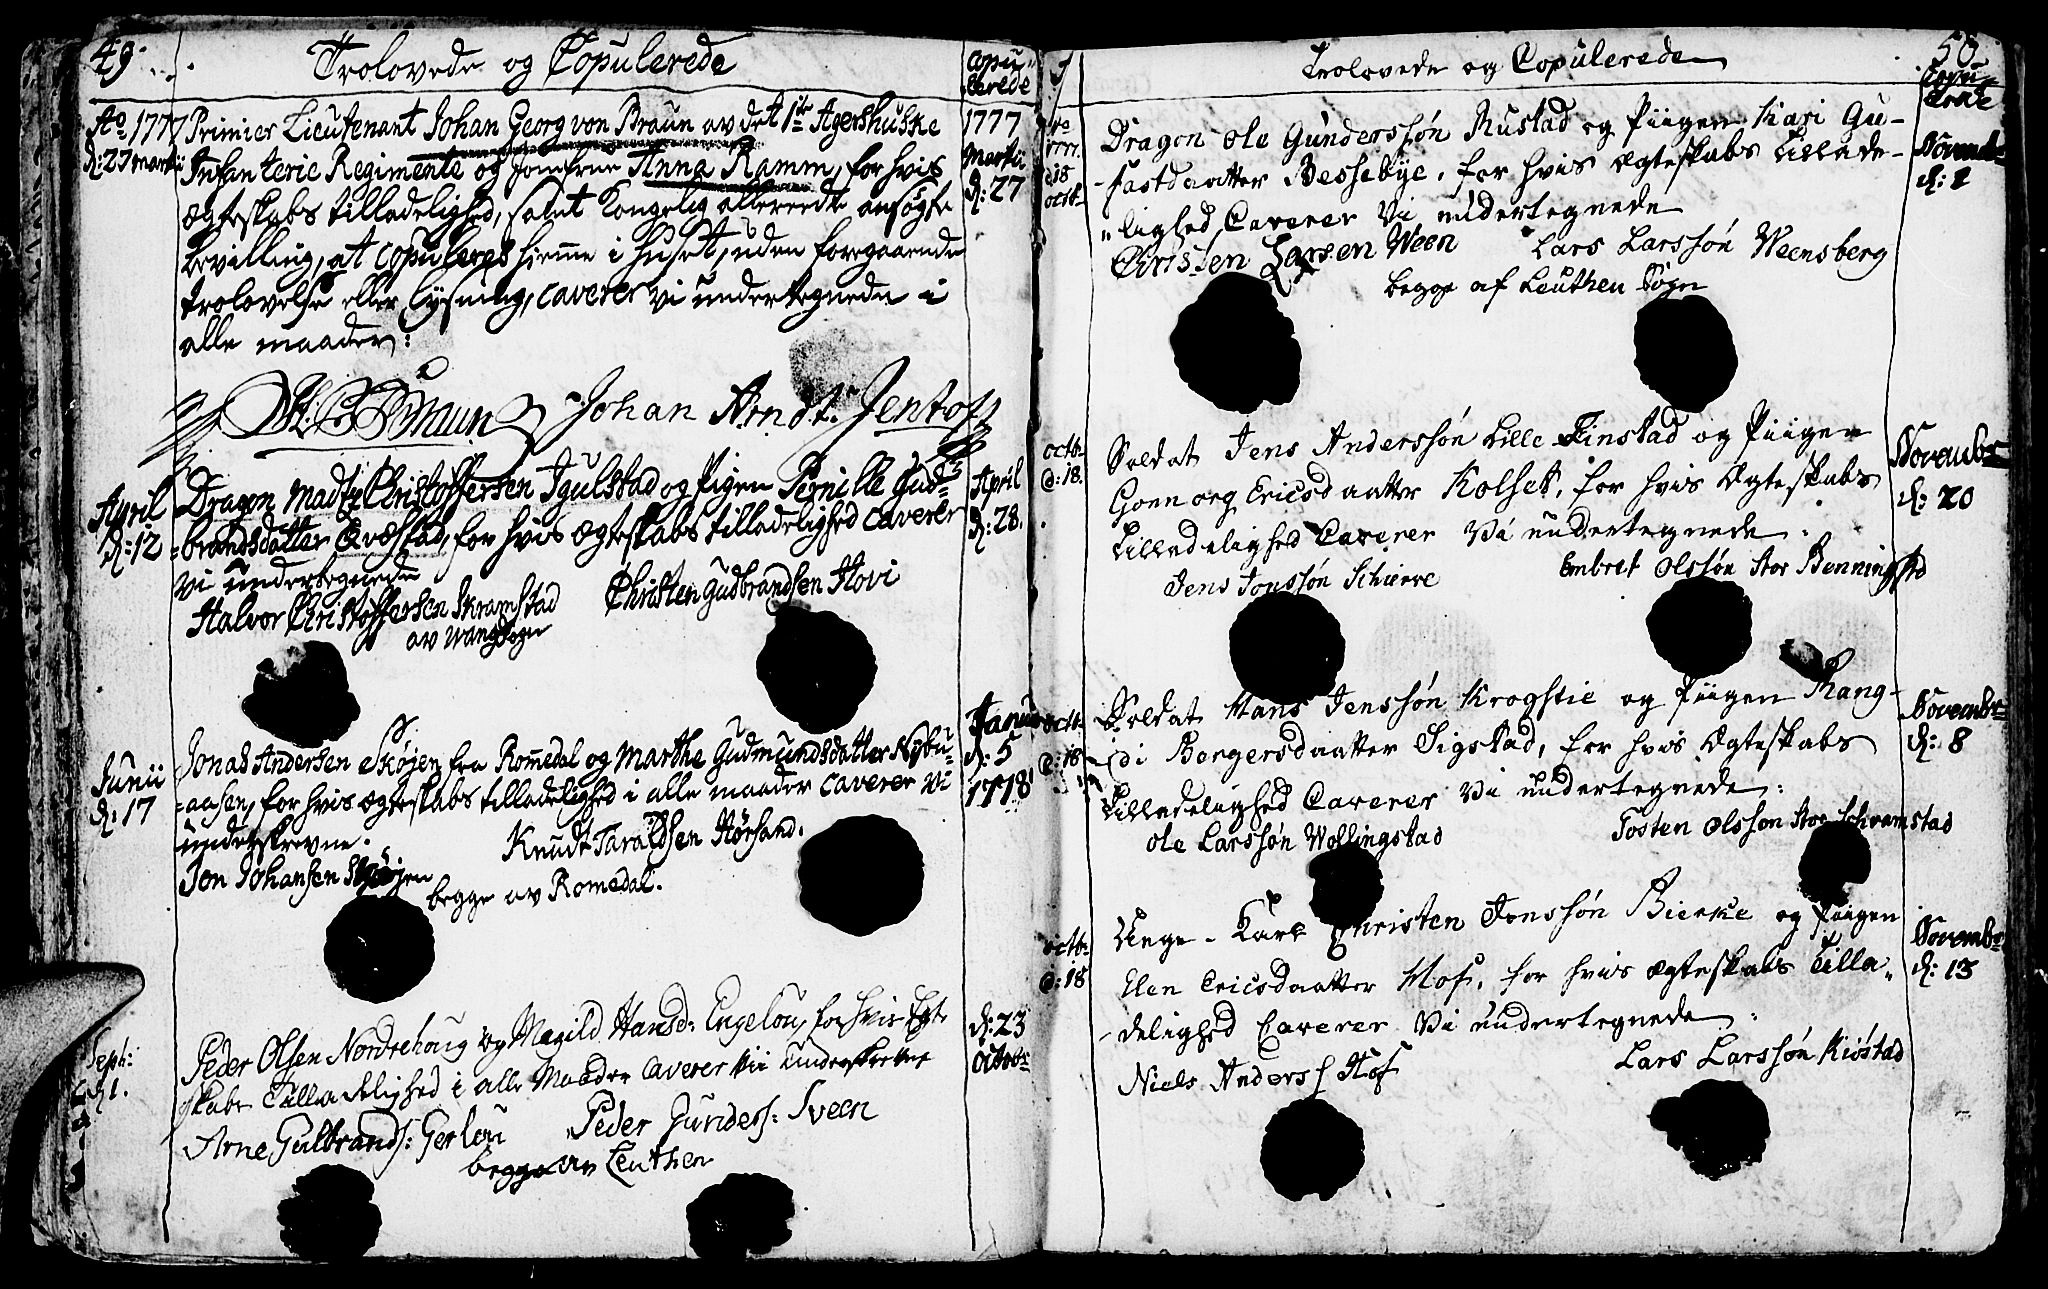 49.
Trolovede og Copulerede
Copu-
lerede
Ao 1777
d: 27 martii
Primier Lieutenant Johan Georg von Braun av det 1te Agershuske
Infanterie Regimente og Jomfrue Anna Ramm, for hvis
ægteskabs tilladelighed, samt Kongelig allereede ansøgte
bevilling, at copuleres hiemme i huset, uden foregaaende
trolovelse eller lysning, caverer vi undertegnede i
alle maader:
1777
Martii
d: 27
Braun Johan Arndt Jentoft
April
d: 12
Dragon Madtz Christoffersen Igulstad og Pigen Pernille Gud-
brandsdatter Qvæstad, for hvis ægteskabs tilladelighed caverer
vi undertegnede
Halvor Christoffersen Skramstad Christen Gudbrandsen Hovi
av wangsogn
April
d: 28.
Junii
d: 17
Jonas Andersen Skøjen fra Romedal og Marthe Gudmundsdatter Nybu-
aasen, for hvis ægteskabs tilladelighed i alle maader caverer vi
underskrevne.
Jon Johansen Skøjen Knudt Taraldsen Hørsand.
begge av Romedal.
Janu
d: 5
1778
Septr:
d 1.
Peder Olsen Nordrehoug og Magild Hansd: Engelou, for hvis Egte
skabs Tilladelighed i alle Maader Caverer vii Underskrevne
Arne Gulbrands: Gerlou Peder Gunders: Sveen
begge av Leuthen
d: 23
Octobr
50
Trolovede og Copulerede
Copu-
1777.
18
octb.
Dragon Ole Gunderssøn Rustad og Piigen Kari Gu-
-fastdaatter Bessebye, for hvis Ægteskabs Tillade-
lighed Caverer Vi undertegnede
Christen Larsen Ween Lars Larssøn Weensberg
begge af Leuthen Sogn
Novemb
octb.
d: 18.
Soldat Jens Anderssøn Lille Finstad og Piigen
Gonnorg Ericsdaatter Kolset, for hvis Ægteskabs
Tilladelighed Caverer Vi undertegnede:
Jens Jonssøn Schierve Embret Olssøn Stor Benningstad
Novembr
d: 20
octb.
d: 18
Soldat Hans Jenssøn Krogstie og Piigen Rang-
di Borgersdaatter Sigstad, for hvis Ægteskabs
Tilladelighed Caverer Vi undertegnede:
Ole Larssøn Wollingstad Tosten Olsson Stor Schramstad
Novembr
d: 8
octb.
d: 18
Unge Karl Christen Jonssøn Bierke og Piigen
Elen Ericsdaatter Hof, for hvis Ægteskabs Tilla-
-delighed Caverer Vi undertegnede:
Niels Anders: Hof Lars Larssøn Kiøstad
Novembr
d: 13